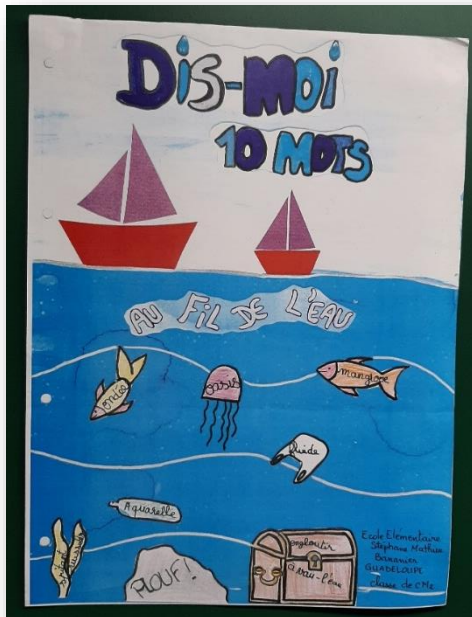 DIS-MOI
10 MOTS
AU FIL DE L'EAU
ondée
oasis
mangrove
fluide
Aquarelle
PLOUF!
engloutir
à vau-l'eau
Ecole Elémentaire
Stéphane Mathieu
Bananier
GUADELOUPE
classe de CM2